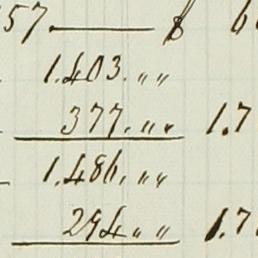 57. — $ 6
1.403. „ „
377. „ „ 1.7
1.486. „ „
294 „ „ 1.7